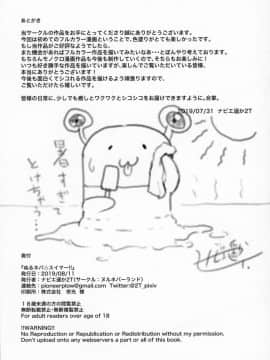 あとがき
当サークルの作品をお手にとってくださり誠にありがとうございます。
今回は初めてのフルカラー漫画ということで、色塗りがとても楽しかったです。
もし当作品がご好評なようでしたら、
また機会があればフルカラー作品を描いてみたいなあ…とぼんやり考えております。
もちろんモノクロ漫画作品も今後も制作していくので、そちらもお楽しみに!
いつも好き勝手な作品を描いていますが、楽しんでご覧いただいている皆様、
本当にありがとうございます!
今後も面白くてシコれる作品を描けるよう頑張りますので、
ご覧いただけたら嬉しいです。
皆様の日常に、少しでも癒しとワクワクとシコシコをお届けできますように。合掌。
2019/07/31 ナビエ遥か2T
暑すぎ
とけちゃう…
奥付
『ぬるネバ☆スイマー!!』
発行日：2019/08/11
発行者：ナビエ遥か2T(サークル：ヌルネバーランド)
連絡先：pioneerplow@gmail.com Twitter@2T_pixiv
印刷所：株式会社 栄光 様
18歳未満の方の閲覧禁止
無断転載禁止・無断複製禁止
For adult readers over age of 18
!!WARNING!!
No Reproduction or Republication or Redistribution without my permission.
Don't upload onto any webservers a part or all of this book.